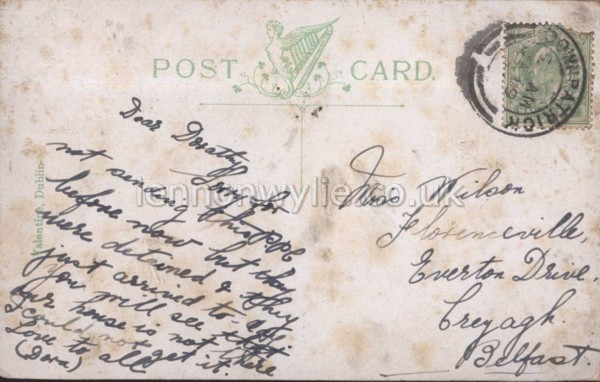 POST CARD.
DOWNPATRICK
Valentine, Dublin
Dear Dorothy
for
not sending this ppc
before now but they
were detained & they
just arrived to-day
you will see that
our house is not there
I could not get it.
Love to all
(Dora)
Miss Wilson
Florenceville,
Everton Drive,
Creyagh.
Belfast.
lennonwylie.co.uk